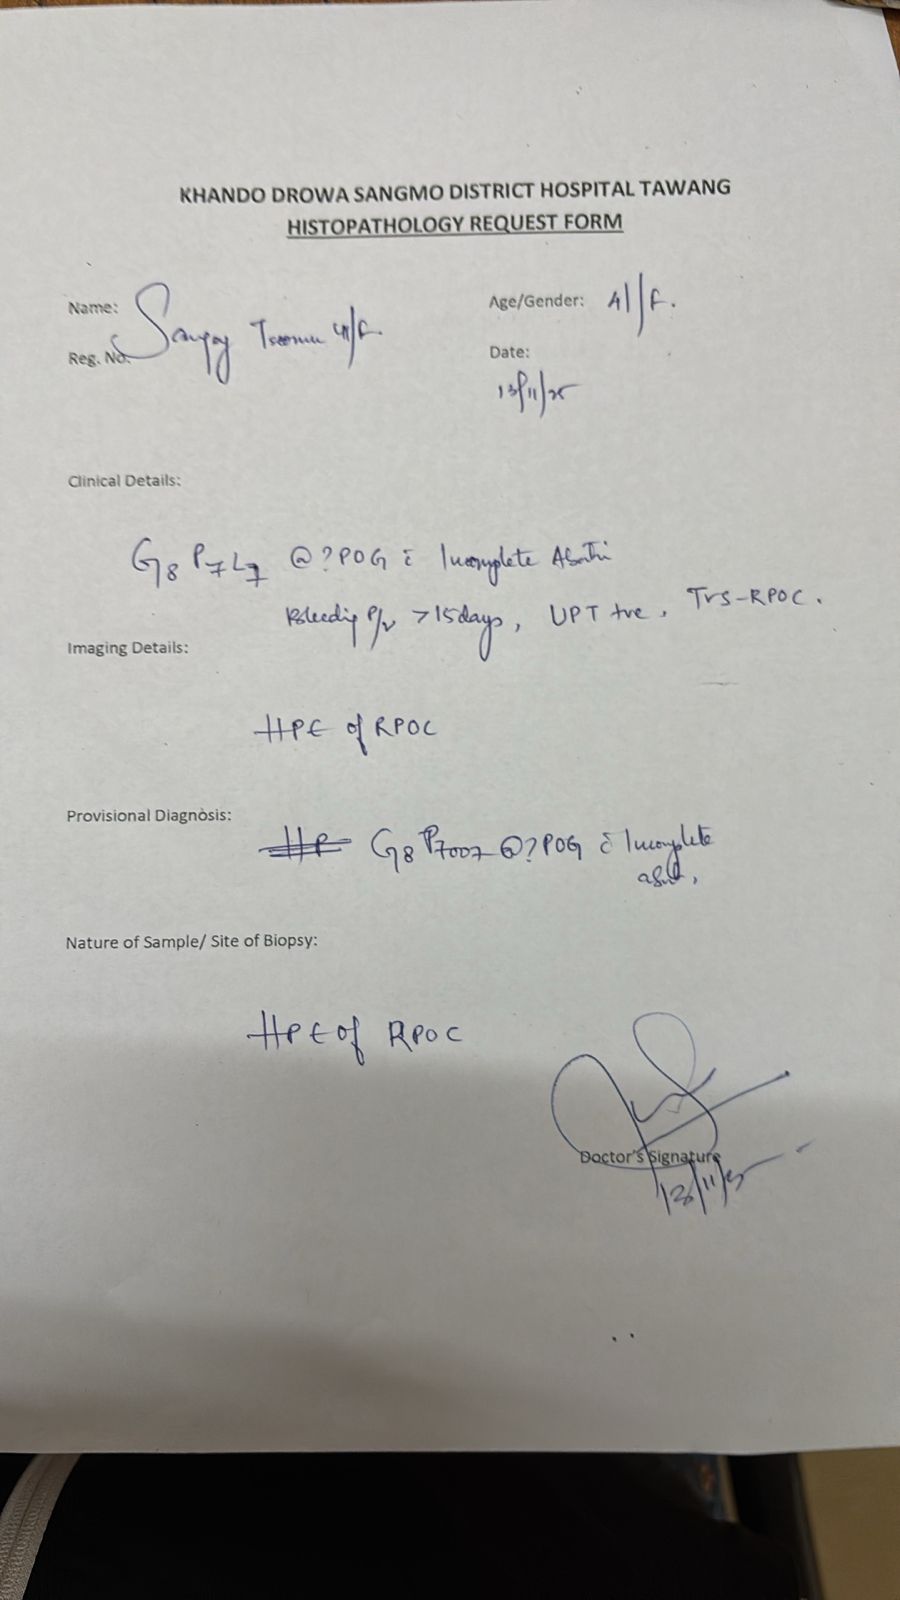 KHANDO DROWA SANGMO DISTRICT HOSPITAL TAWANG
HISTOPATHOLOGY REQUEST FORM
Name: 41/F
Age/Gender: 41/F.
Reg. No.
Date:
13/11/25
Clinical Details:
G8 P7L7 @?POG c̄ Incomplete
Bleeding P/v >15days, UPT +ve, TVS-RPOC.
Imaging Details:
HPE of RPOC
Provisional Diagnosis:
G8P7007 @?POG c̄ Incomplete
Nature of Sample/ Site of Biopsy:
HPE of RPOC
Doctor's Signature
13/11/25